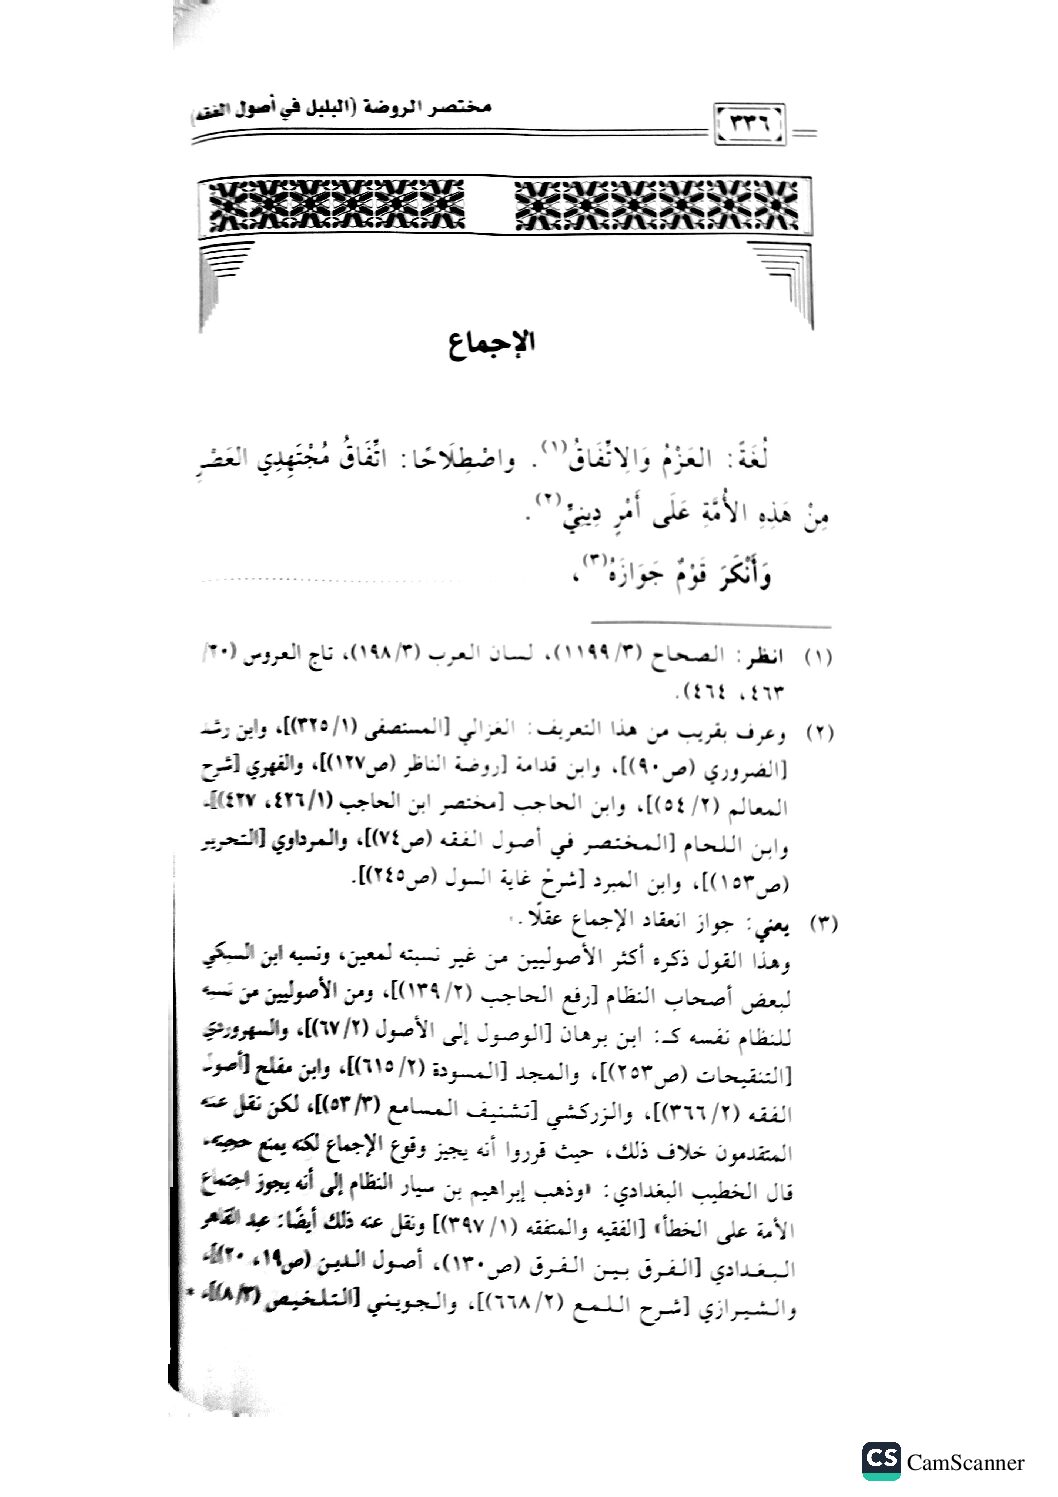 ٣٣٦
مختصر الروضة (البلبل في أصول الفقه)
الإجماع
لُغَةً: العَزْمُ وَالِاتِّفَاقُ(١). واصْطِلَاحًا: اتِّفَاقُ مُجْتَهِدِي العَصْرِ
مِنْ هَذِهِ الأُمَّةِ عَلَى أَمْرٍ دِينِيٍّ(٢).
وَأَنْكَرَ قَوْمٌ جَوَازَهُ(٣)،
(١) انظر: الصحاح (٣/ ١١٩٩)، لسان العرب (٣/ ١٩٨)، تاج العروس (٢٠/
٤٦٣، ٤٦٤).
(٢) وعرف بقريب من هذا التعريف: الغزالي [المستصفى (١/ ٣٢٥)]، وابن رشد
[الضروري (ص٩٠)]، وابن قدامة [روضة الناظر (ص١٢٧)]، والفهري [شرح
المعالم (٢/ ٥٤)]، وابن الحاجب [مختصر ابن الحاجب (١/ ٤٢٦، ٤٢٧)]،
وابن اللحام [المختصر في أصول الفقه (ص٧٤)]، والمرداوي [التحرير
(ص١٥٣)]، وابن المبرد [شرح غاية السول (ص٢٤٥)].
(٣) يعني: جواز انعقاد الإجماع عقلًا.
وهذا القول ذكره أكثر الأصوليين من غير نسبته لمعين، ونسبه ابن السبكي
لبعض أصحاب النظام [رفع الحاجب (٢/ ١٣٩)]، ومن الأصوليين من نسبه
للنظام نفسه كـ: ابن برهان [الوصول إلى الأصول (٢/ ٦٧)]، والسهروردي
[التنقيحات (ص٢٥٣)]، والمجد [المسودة (٢/ ٦١٥)]، وابن مفلح [أصول
الفقه (٢/ ٣٦٦)]، والزركشي [تشنيف المسامع (٣/ ٥٣)]، لكن نقل عنه
المتقدمون خلاف ذلك، حيث قرروا أنه يجيز وقوع الإجماع لكنه يمنع حجيته،
قال الخطيب البغدادي: «وذهب إبراهيم بن سيار النظام إلى أنه يجوز اجتماع
الأمة على الخطأ» [الفقيه والمتفقه (١/ ٣٩٧)] ونقل عنه ذلك أيضًا: عبد القاهر
البغدادي [الفرق بين الفرق (ص١٣٠)، أصول الدين (ص١٩، ٢٠)]،
والشيرازي [شرح اللمع (٢/ ٦٦٨)]، والجويني [التلخيص (٣/ ٨)]، *
CS CamScanner